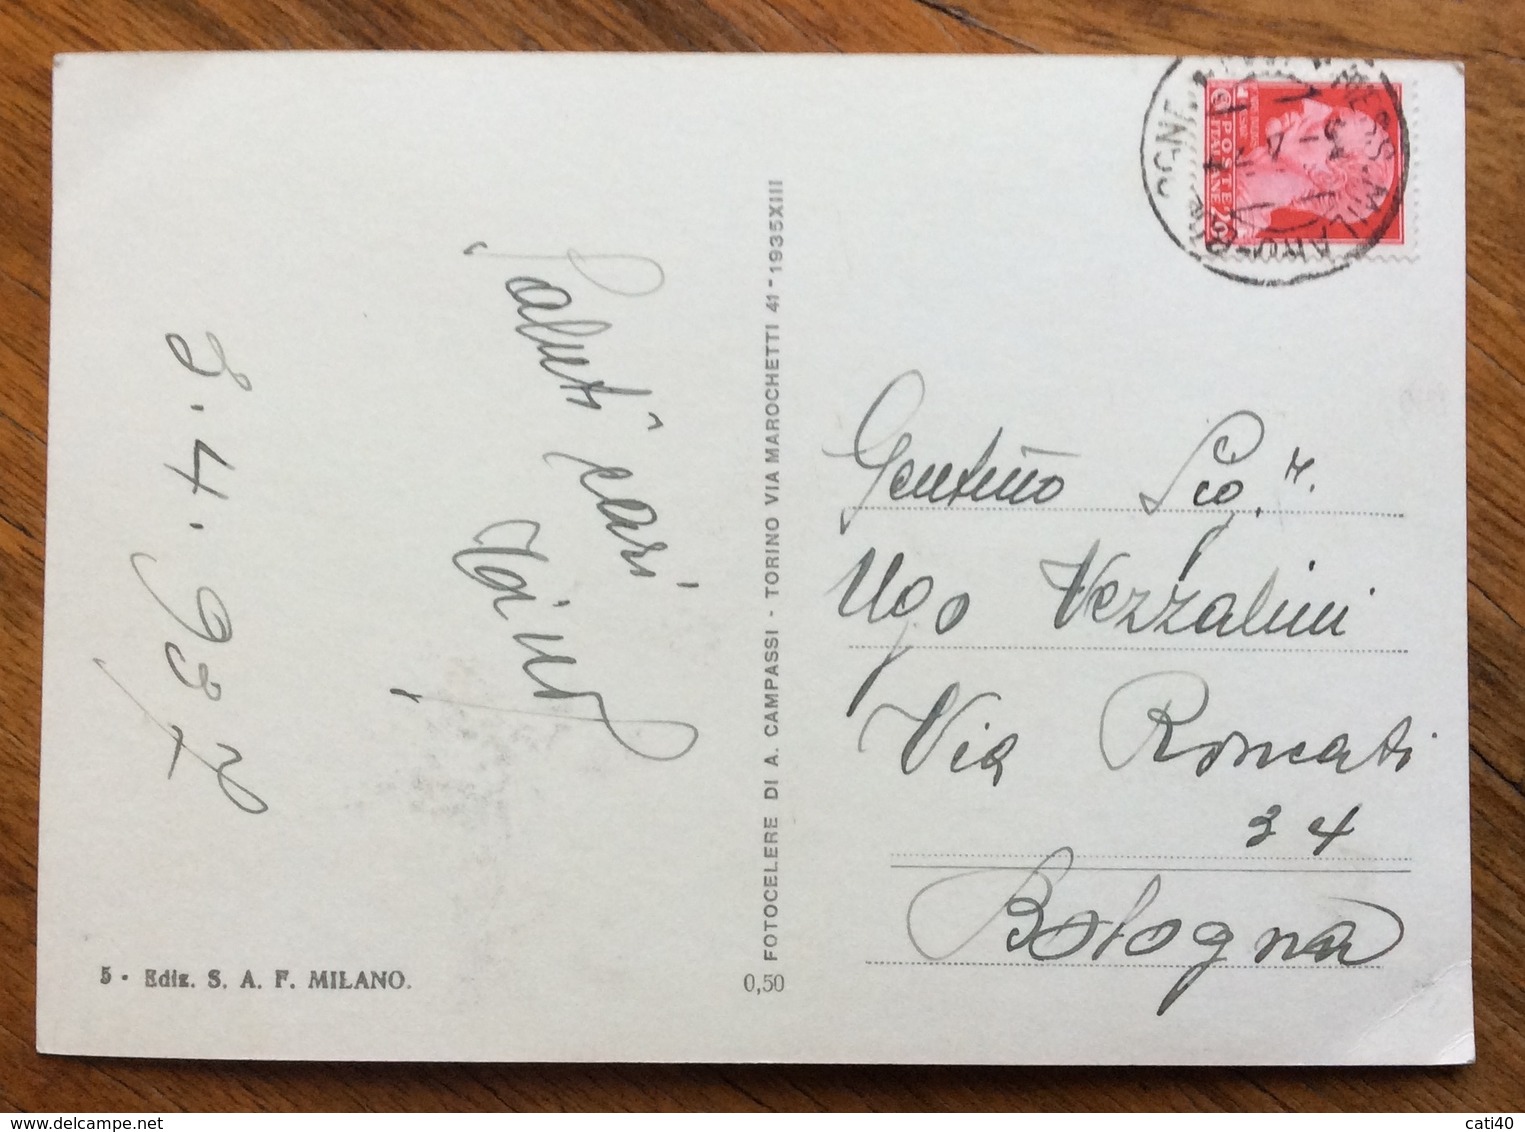 3.4.937
Saluti cari
5 - Ediz. S. A. F. MILANO.
FOTOCELERE DI A. CAMPASSI - TORINO VIA MAROCHETTI 41 - 1935XIII
0,50
POSTE ITALIANE
MESS. MILANO-BOLOGNE
Gentmo Sig.r
Ugo Vezzalini
Via Roncati
34
Bologna
cati40